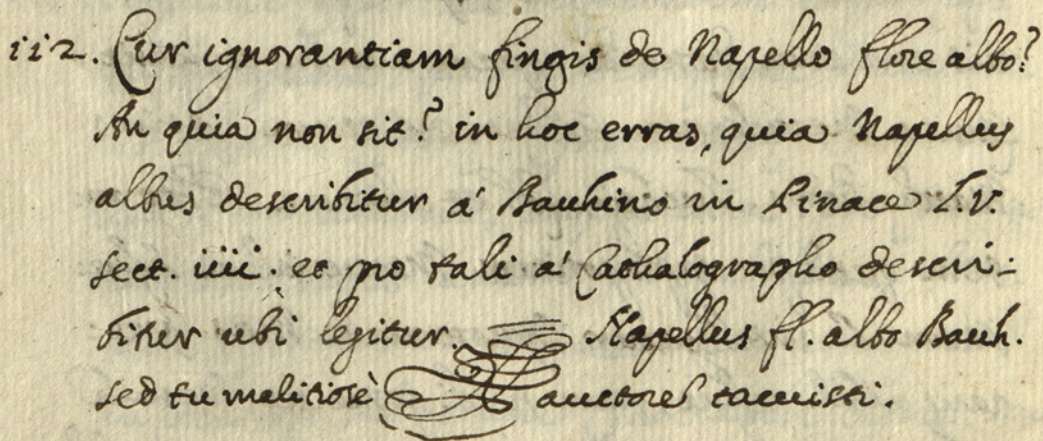 112. Cur ignorantiam fingis de Napello flore albo?
An quia non sit? in hoc erras, quia Napellus
albus describitur á Bauhino in Pinace L.V.
sect. iiii. et pro tali á Cathalographo descri-
bitur ubi legitur. Napellus fl. albo Bauh.
sed tu malitiosè auctorē tacuisti.